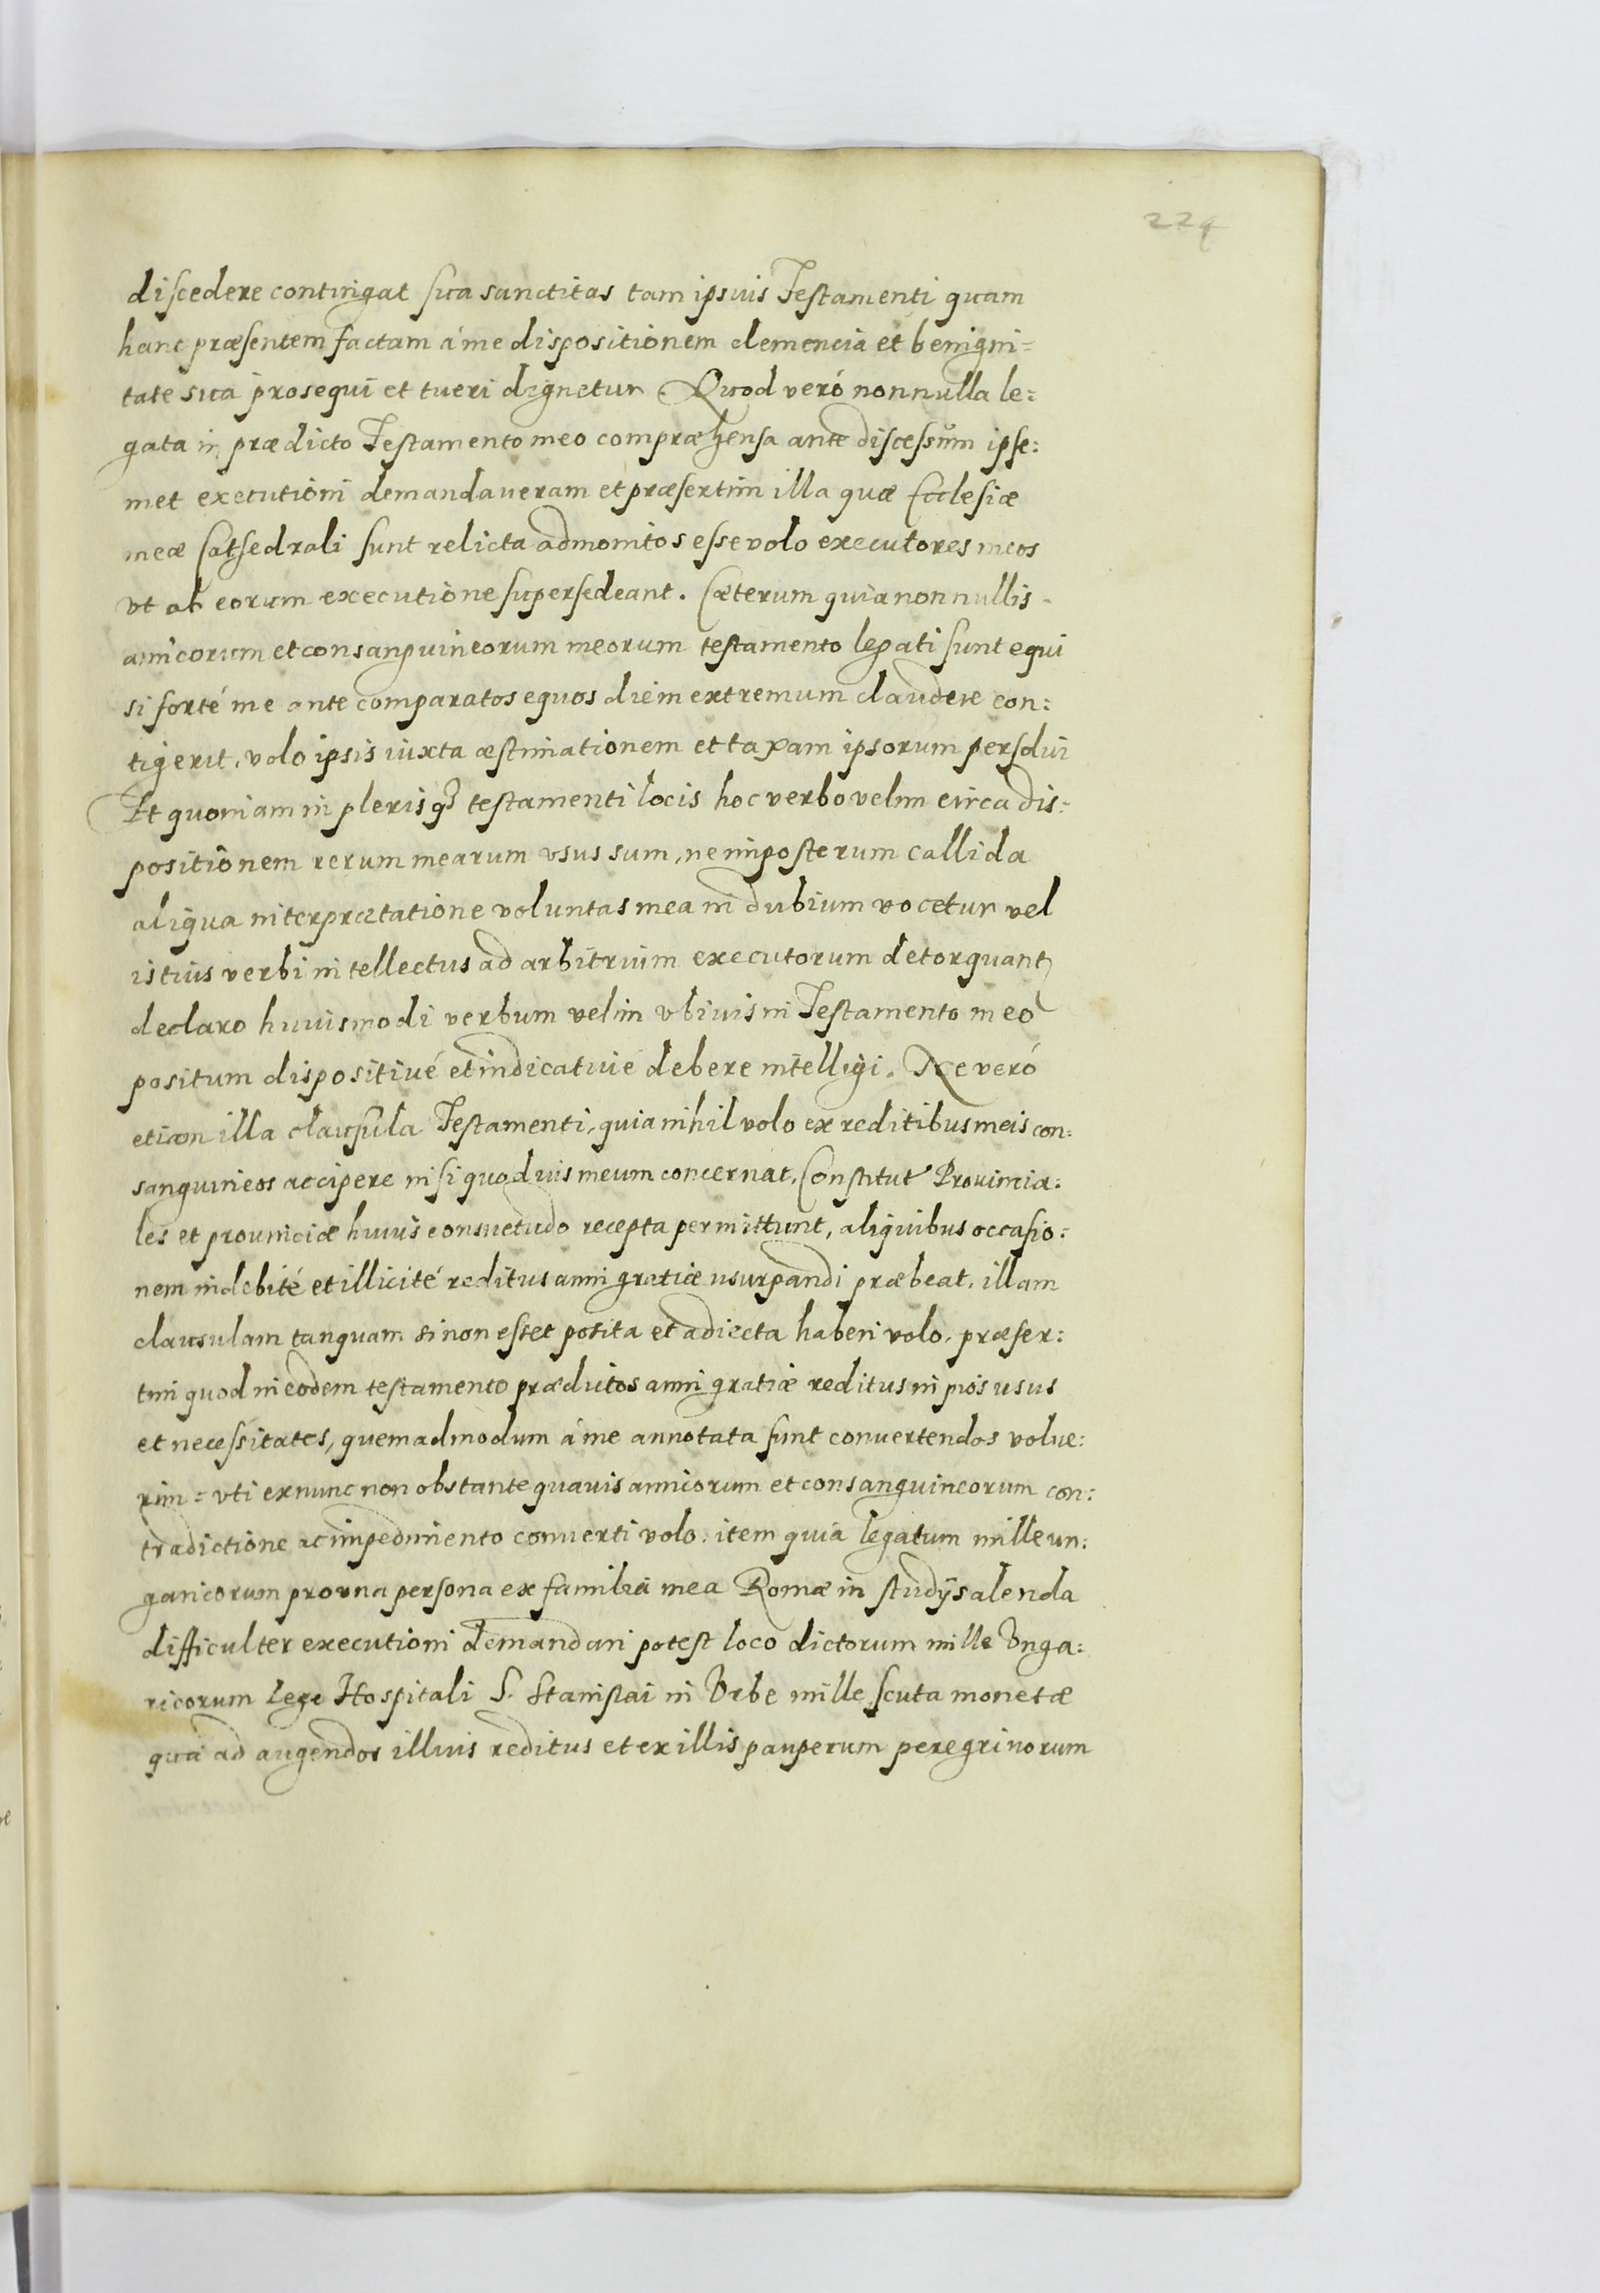 224
discedere contingat sua sanctitas tam ipsius Testamenti quam
hanc præsentem factam á me dispositionem clemencia et benigni=
tate sua prosequi et tueri dignetur. Quod veró nonnulla le:
gata in prædicto Testamento meo compræhensa ante discessum ipse:
met executioni demandaveram et præsertim illa quæ Ecclesiæ
meæ Cathedrali sunt relicta admonitos esse volo executores meos
vt ab eorum executione supersedeant. Cæterum quia nonnullis
amicorum et consanguineorum meorum testamento legati sunt equi
si forté me ante comparatos equos diem extremum claudere con:
tigerit, volo ipsis iuxta æstimationem et taxam ipsorum persolui
Et quoniam in plerisq3 testamenti locis hoc verbo velim circa dis:
positionem rerum mearum vsus sum, ne imposterum callida
aliqua interprætatione voluntas mea in dubium vocetur vel
istius verbi intellectus ad arbitrium executorum detorqueant
declaro huiusmodi verbum velim vbiuis in Testamento meo
positum dispositiué et indicatiué debere intelligi. Ne veró
etiam illa clausula Testamenti, quia nihil volo ex reditibus meis con:
sanguineos accipere nisi quod ius meum concernat, Constitut Prouincia:
les et prouinciæ huius consuetudo recepta permittunt, aliquibus occasio:
nem indebité et illicité reditus anni gratiæ usurpandi præbeat, illam
clausulam tanquam si non esset posita et adiecta haberi volo, præser:
tim quod in eodem testamento prædictos anni gratiæ reditus in pios usus
et necessitates, quemadmodum á me annotata sunt conuertendos volue:
rim = vti ex nunc non obstante quauis amicorum et consanguineorum con:
tradictione ac impedimento conuerti volo. item quia legatum mille un:
garicorum pro vna persona ex familia mea Romæ in studijs alenda
difficulter executioni demandari potest loco dictorum mille Vnga:
ricorum lego Hospitali S. Stanislai in Vrbe mille scuta monetæ
qua ad augendos illius reditus et ex illis pauperum peregrinorum